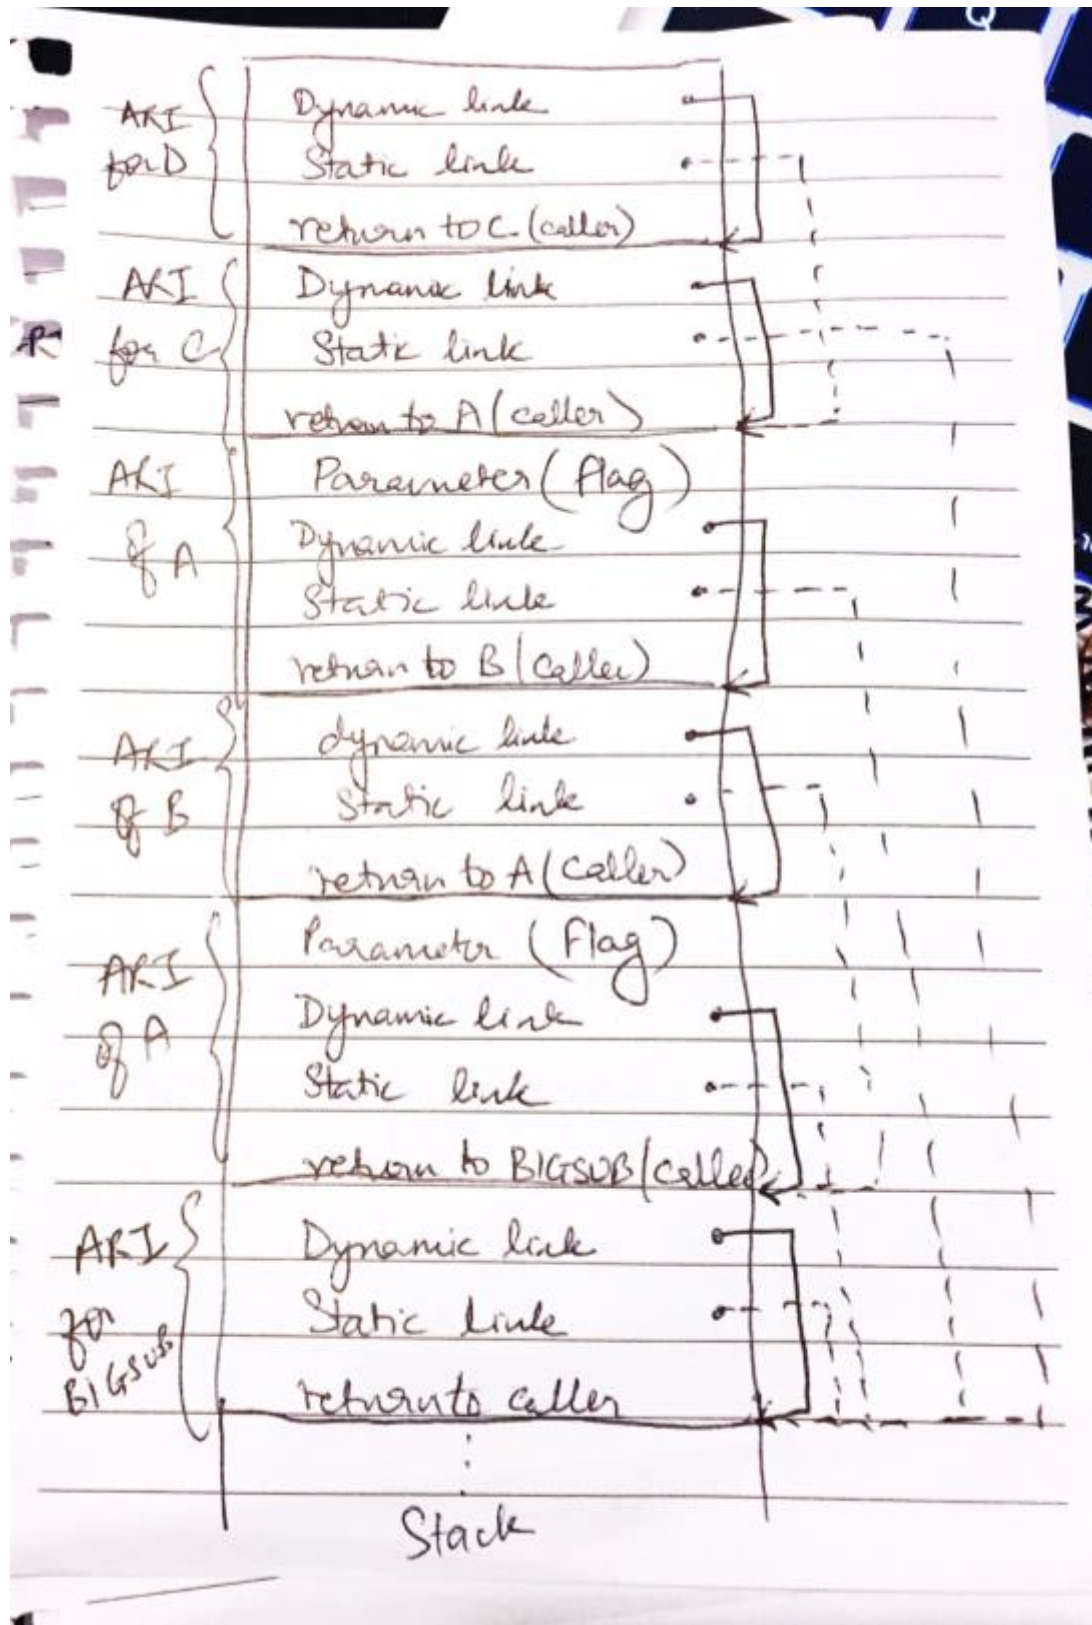 Q
ARI
for D
Dynamic link
Static link
return to C. (caller)
ARI
for C
Dynamic link
Static link
return to A (caller)
ARI
of A
Parameter (Flag)
Dynamic link
Static link
return to B (caller)
ARI
of B
dynamic link
Static link
return to A (caller)
ARI
of A
Parameter (Flag)
Dynamic link
Static link
return to BIGSUB (caller)
ARI
for
BIGSUB
Dynamic link
Static link
return to caller
Stack